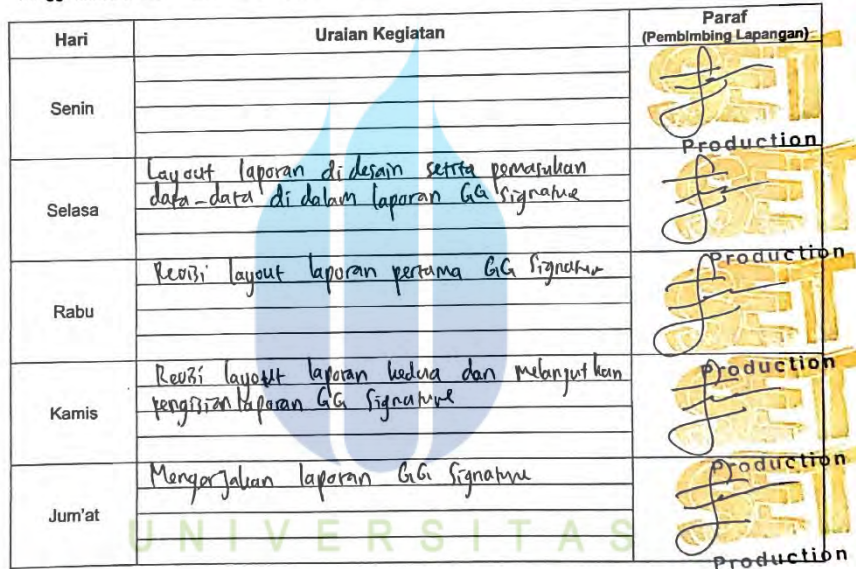 Hari Uraian Kegiatan Paraf
(Pembimbing Lapangan)
Senin
SET
Production
Selasa
Layout laporan di desain sertta pemasukan
data-data di dalam laporan GG Signature
SET
Production
Rabu
Revisi layout laporan pertama GG Signature
SET
Production
Kamis
Revisi layout laporan kedua dan melanjutkan
pengisian laporan GG Signature
SET
Production
Jum'at
Mengerjakan laporan GG Signature
SET
Production
UNIVERSITAS